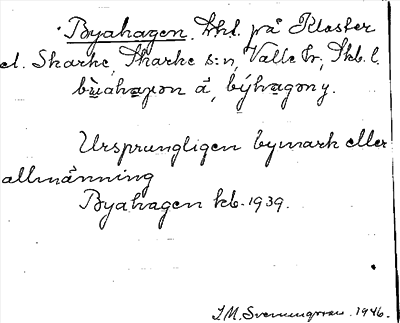 Byahagen. Lhl. på Kloster
el. Skarke, Skarke s:n, Valle hr, Skb. l.
bùahaɡon å, býhaɡon y.
Ursprungligen bymark eller
allmänning
Byahagen kb. 1939.
I.M. Svenungsson. 1946.